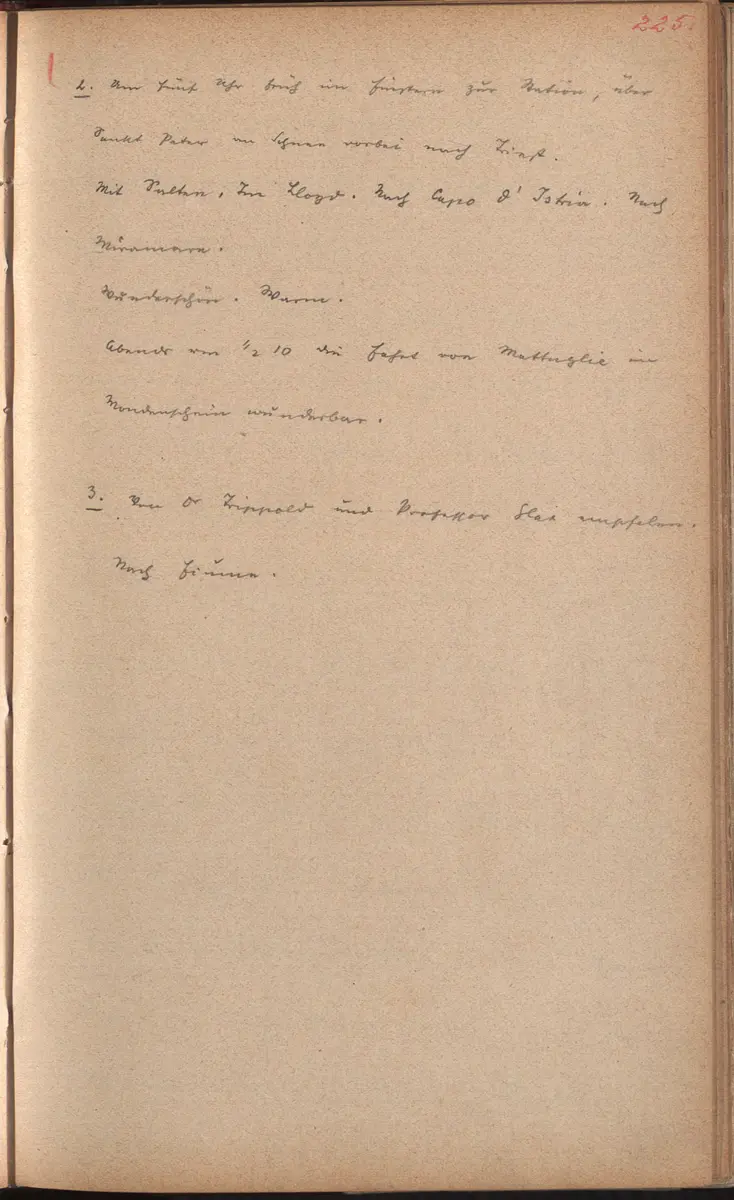 225.
2. Um fünf Uhr früh im Finstern zur Station, über
Sankt Peter an Schnee vorbei nach Triest.
Mit Salten. Im Lloyd. Nach Capo d'Istria. Nach
Miramare.
Wunderschön. Warm.
Abends um 1/2 10 die Fahrt von Mattuglie im
Mondenschein wunderbar.
3. Von Dr Trippold und Professor Glax empfolen.
Nach Fiume.